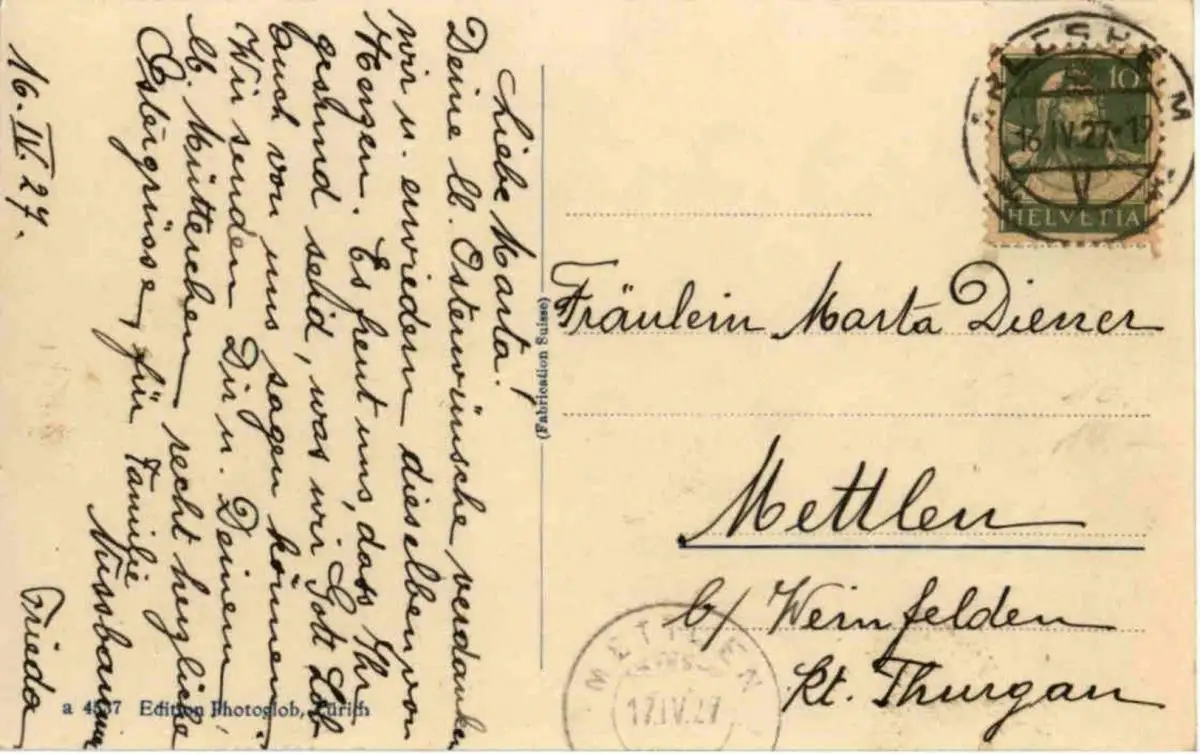 Liebe Marta!
Deine lb. Osterwünsche verdanken
wir u. erwiedern dieselben von
Herzen. Es freut uns, dass Ihr
gesund seid, was wir Gott Lob
auch von uns sagen können.
Wir senden Dir u. Deinem
lb. Mütterchen recht herzliche
Ostergrüsse, für Familie
Nussbaumer
Frieda
16. IV. 27.
a 4537 Edition Photoglob, Zürich
(Fabrication Suisse)
10
HELVETIA
16.IV.27-19
Fräulein Marta Diener
Mettlen
b/ Weinfelden
kt. Thurgau
METTLEN
17.IV.27